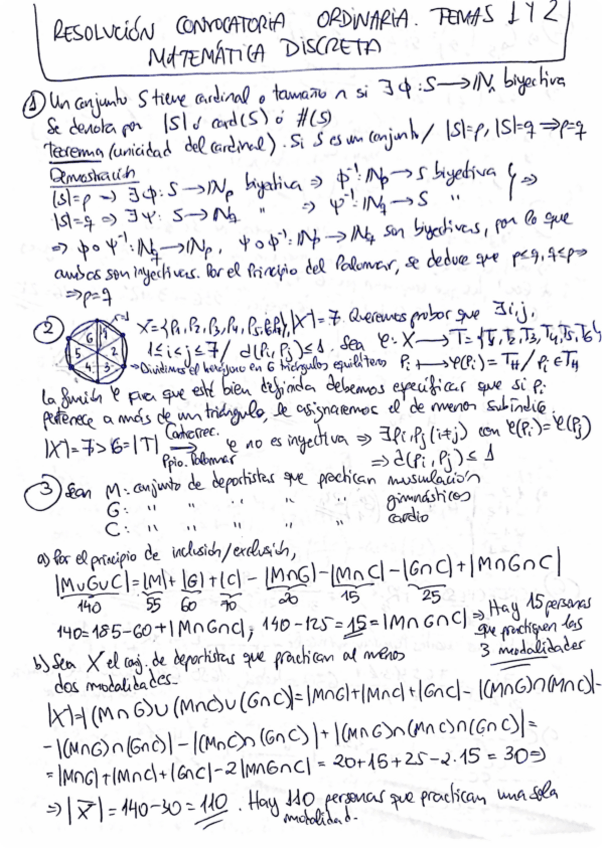 RESOLUCIÓN CONVOCATORIA ORDINARIA. TEMAS 1 Y 2
MATEMÁTICA DISCRETA
① Un conjunto S tiene cardinal o tamaño n si ∃ ϕ: S → ℕn biyectiva
Se denota por |S| ó card(S) ó #(S)
Teorema (unicidad del cardinal). Si S es un conjunto / |S|=p, |S|=q ⇒ p=q
Demostración
|S|=p ⇒ ∃ϕ: S → ℕp biyectiva ⇒ ϕ⁻¹: ℕp → S biyectiva } ⇒
|S|=q ⇒ ∃ψ: S → ℕq " ⇒ ψ⁻¹: ℕq → S "
⇒ ϕ∘ψ⁻¹: ℕq → ℕp, ψ∘ϕ⁻¹: ℕp → ℕq son biyectivas, por lo que
ambas son inyectivas. Por el Principio del Palomar, se deduce que p≤q, q≤p ⇒
⇒ p=q
② X={P₁,P₂,P₃,P₄,P₅,P₆,P₇}, |X|=7. Queremos probar que ∃i,j,
1≤i<j≤7 / d(Pi,Pj)≤1. Sea φ: X → T={T₁,T₂,T₃,T₄,T₅,T₆}
6 1 5 2 4 3
→ Dividimos el hexágono en 6 triángulos equiláteros Pi → φ(Pi)=TH / Pi ∈ TH
La función φ para que esté bien definida debemos especificar que si Pi
pertenece a más de un triángulo, le asignaremos el de menor subíndice.
|X|=7>6=|T| Contrarrec. Ppio. Palomar → φ no es inyectiva ⇒ ∃Pi,Pj (i≠j) con φ(Pi)=φ(Pj)
⇒ d(Pi,Pj)≤1
③ Sean M: conjunto de deportistas que practican musculación
G: " " " " gimnásticos
C: " " " " cardio
a) Por el principio de inclusión/exclusión,
|M∪G∪C|=|M|+|G|+|C|-|M∩G|-|M∩C|-|G∩C|+|M∩G∩C|
140 55 60 70 20 15 25
140=185-60+|M∩G∩C|; 140-125=15=|M∩G∩C| ⇒ Hay 15 personas
que practiquen las
3 modalidades
b) Sea X el conj. de deportistas que practican al menos
dos modalidades.
|X|=|(M∩G)∪(M∩C)∪(G∩C)|=|M∩G|+|M∩C|+|G∩C|-|(M∩G)∩(M∩C)|-
-|(M∩G)∩(G∩C)|-|(M∩C)∩(G∩C)|+|(M∩G)∩(M∩C)∩(G∩C)|=
=|M∩G|+|M∩C|+|G∩C|-2|M∩G∩C|=20+15+25-2·15=30 ⇒
⇒ |X̅|=140-30=110. Hay 110 personas que practican una sola
modalidad.